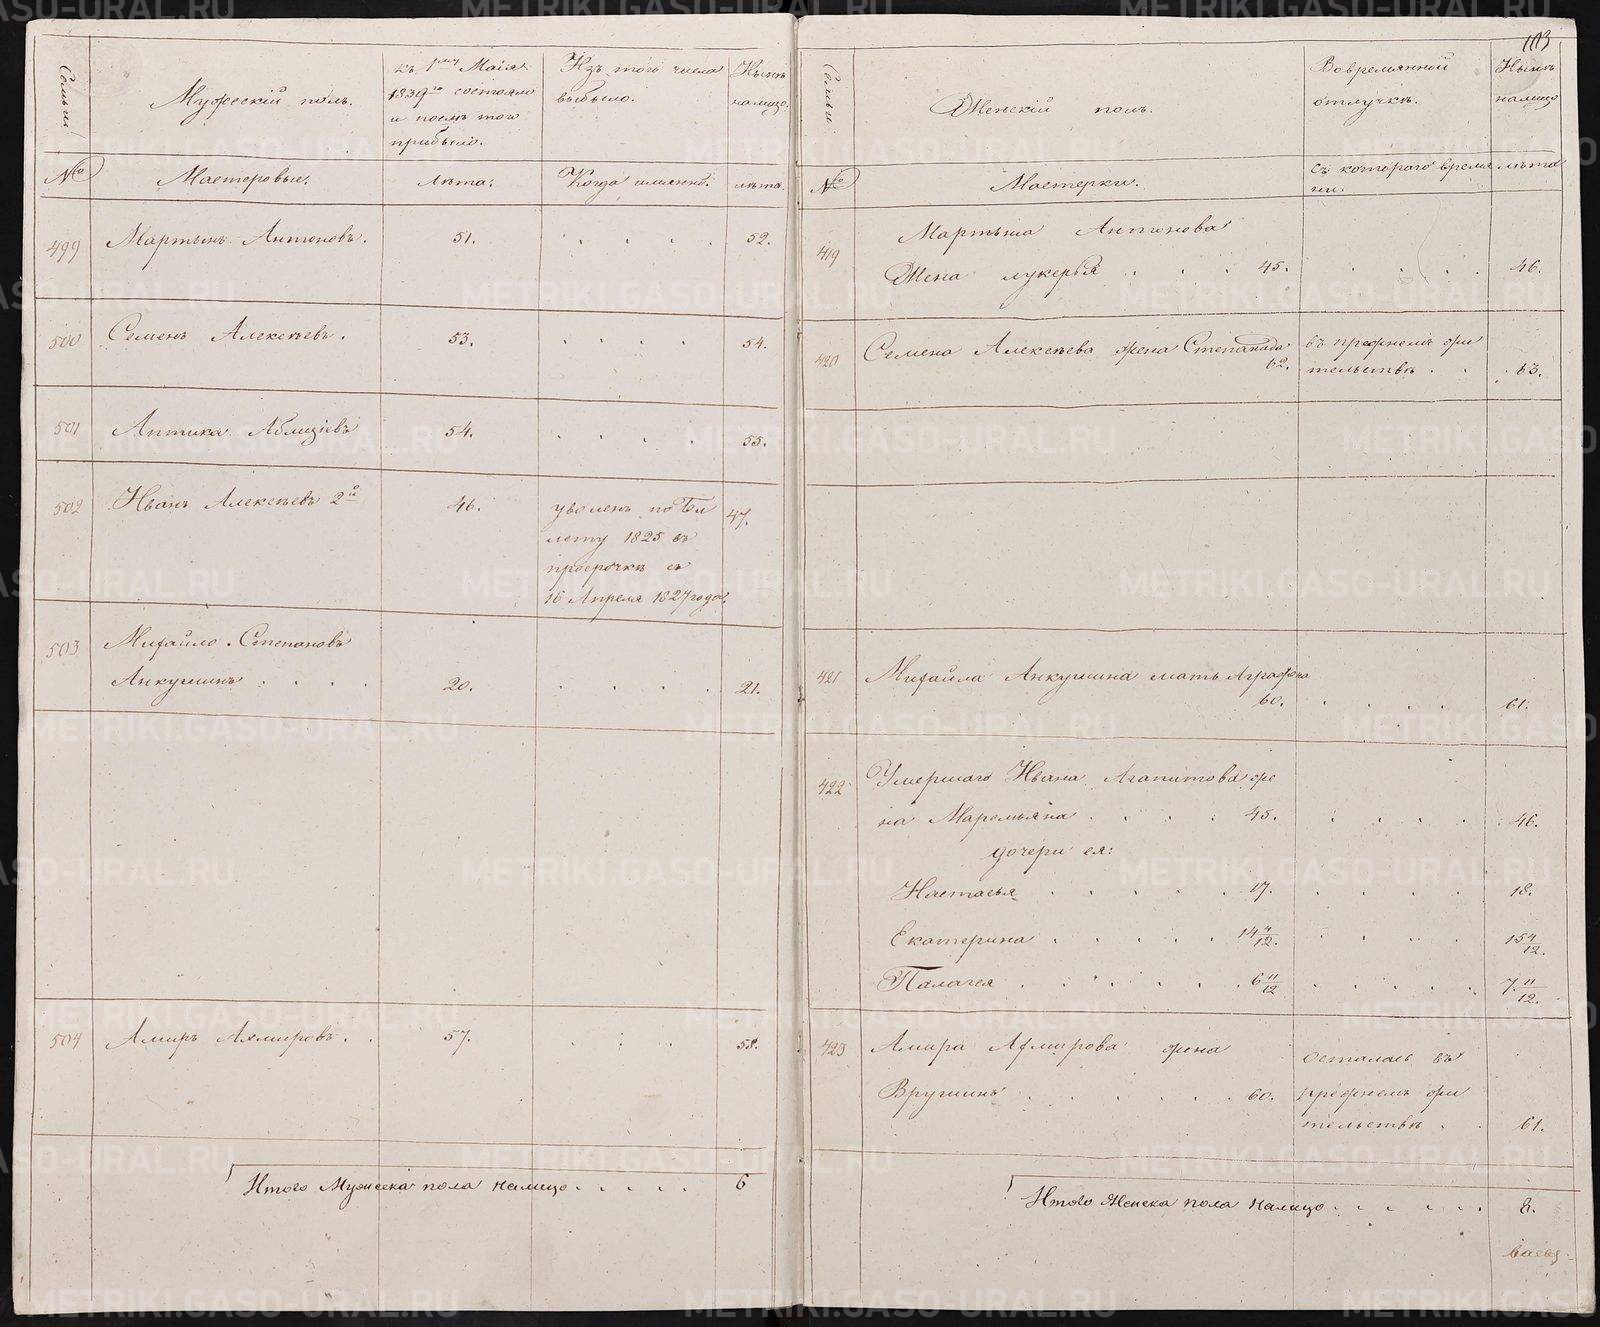 Семьи
Мужескій полъ.
къ 1му Маія
1839го состояло
и послѣ того
прибыло.
Изъ того числа
выбыло.
Нынѣ
налицо.
№
Мастеровые.
Лѣта.
Когда имянно.
лѣта.
499
Мартынъ Антоновъ.
51.
52.
500
Семенъ Алексѣевъ.
53.
54.
501
54.
55.
502
Иванъ Алексѣевъ 2й
46.
уволенъ по би
лету 1825 въ
просрочкѣ съ
16 Апреля 1827 года.
47.
503
Михайло Степановъ
Анкушинъ
20.
21.
504
Амиръ Ахмировъ.
57.
58.
Итого Мужеска пола налицо
6
103
Семьи
Женскій полъ.
Вовремянной
отлучкѣ.
Нынѣ
налицо
№
Мастерки.
съ котораго время
ни.
лѣта
419
Мартына Антонова
Жена лукерья 45.
46.
420
Семена Алексѣева жена Степанида
62.
въ прежнемъ жи
тельствѣ
63.
421
Михайла Анкушина мать Аграфена
60.
61.
422
Умершаго Ивана Агапитова же
на Маремьяна 45.
46.
дочери ея:
Настасья 17.
18.
Екатерина 14 4/12.
15 4/12.
Палагея 6 11/12
7 11/12.
423
Амира Ахмирова жена
осталась въ
60.
прежнемъ жи
тельствѣ
61.
Итого Женска пола налицо
8.
METRIKI.GASO-URAL.RU